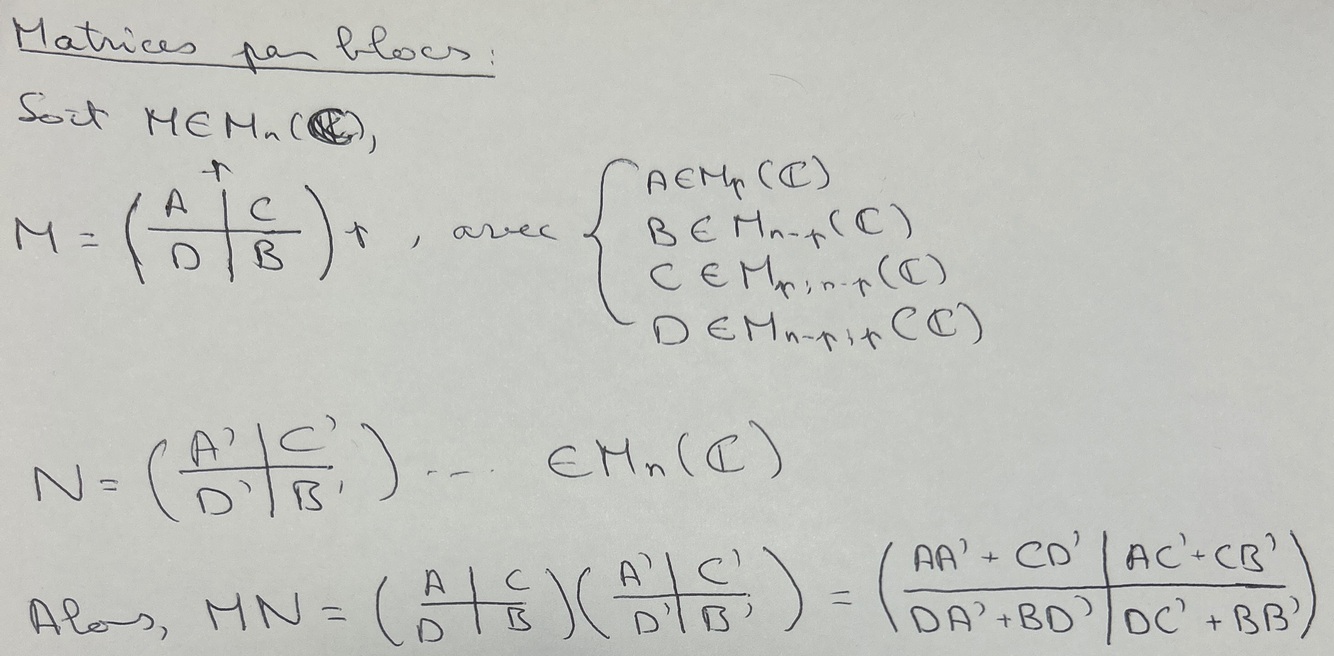 Matrices par blocs :
Soit M ∈ M_n(ℂ),
M = (A | C / D | B) r, avec { A ∈ M_r(ℂ)
B ∈ M_{n-r}(ℂ)
C ∈ M_{r,n-r}(ℂ)
D ∈ M_{n-r,r}(ℂ)
N = (A' | C' / D' | B') ... ∈ M_n(ℂ)
Alors, MN = (A | C / D | B)(A' | C' / D' | B') = (AA' + CD' | AC' + CB' / DA' + BD' | DC' + BB')